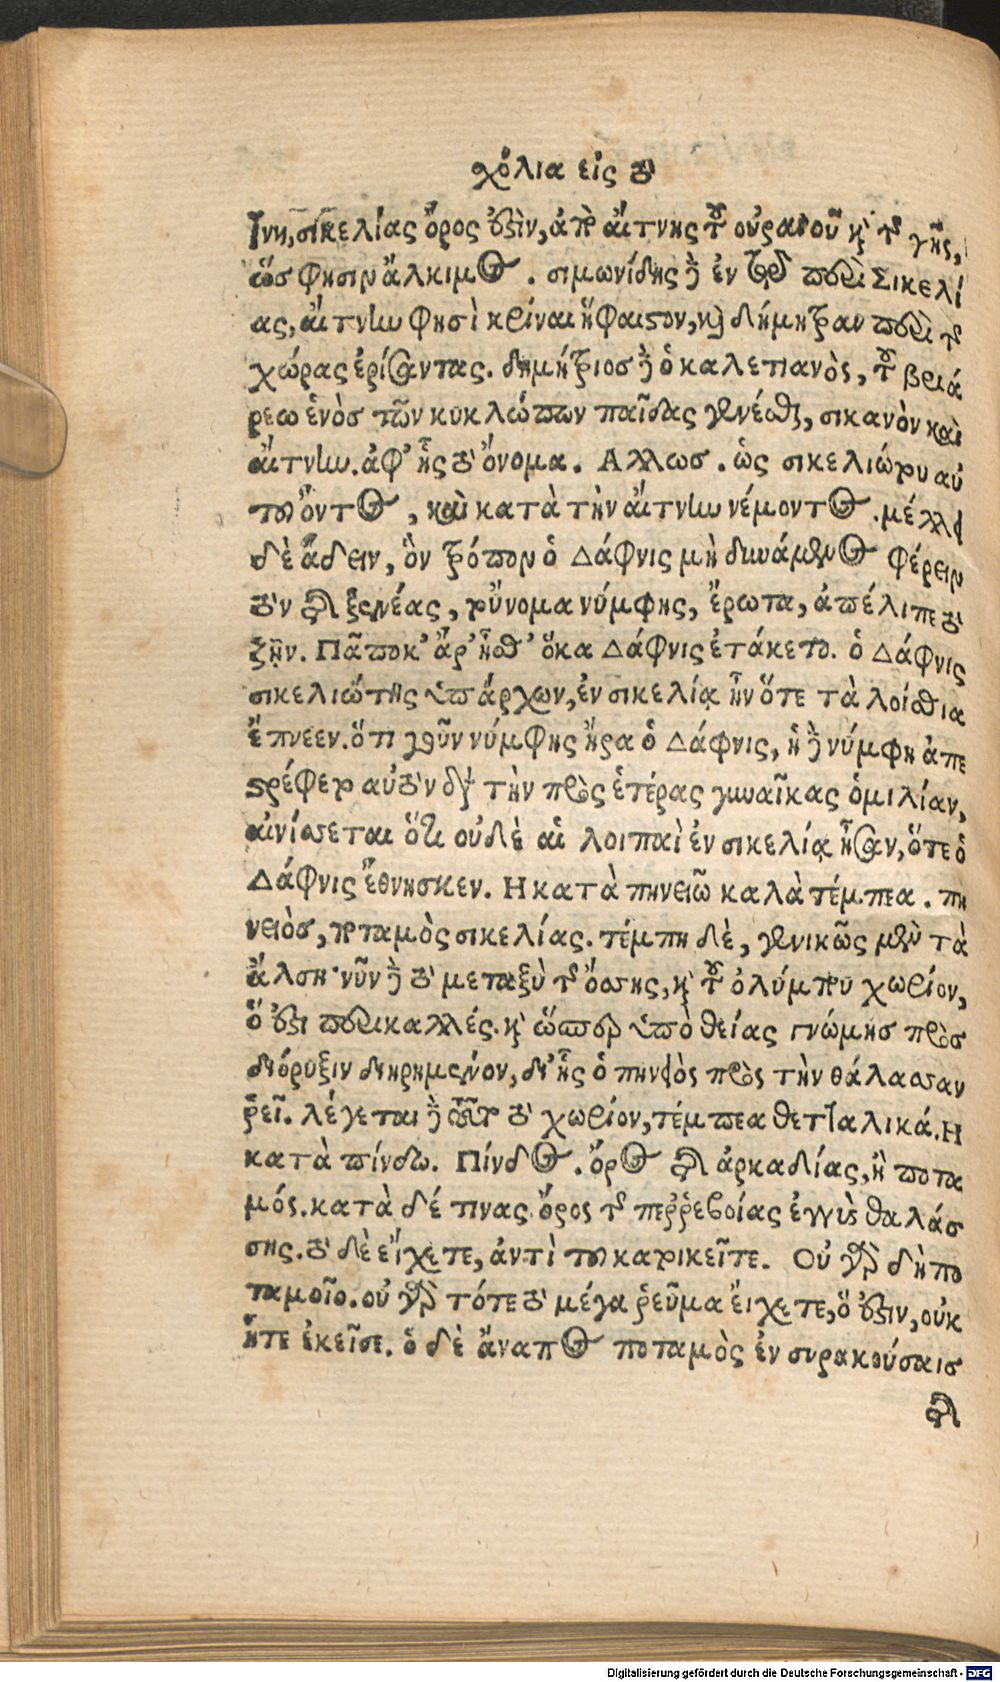 σχόλια εἰς τὸ
τνη, σικελίας ὄρος ἐστὶν, ἀπὸ αἴτνης τοῦ οὐρανοῦ καὶ τῆς γῆς,
ὥς φησιν ἄλκιμος. σιμωνίδης δὲ ἐν τῷ περὶ Σικελί
ας, αἴτνην φησὶ κρίναι ἥφαιστον, καὶ δήμητραν περὶ τῆς
χώρας ἐρίσαντας. δημήτριος δὲ ὁ καλετιανὸς, τοῦ βριά
ρεω ἑνὸς τῶν κυκλώπων παῖδας γενέσθαι, σικανὸν καὶ
αἴτνην. ἀφ' ἧς τὸ ὄνομα. Αλλωσ. ὡς σικελιώτου αὐ
τοῦ ὄντος, καὶ κατὰ τὴν αἴτνην νέμοντος. μέλλει
δὲ ἄδειν, ὃν τρόπον ὁ Δάφνις μὴ δυνάμενος φέρειν
τὸν τῆς ξενέας, τοὔνομα νύμφης, ἔρωτα, ἀπέλιπε τὸ
ζῇν. Πᾶ ποκ' ἄρ' ἦσθ' ὅκα Δάφνις ἐτάκετο. ὁ Δάφνις
σικελιώτης ὑπάρχων, ἐν σικελίᾳ ἦν ὅτε τὰ λοίσθια
ἔπνεεν. ὅτι γοῦν νύμφης ἤρα ὁ Δάφνις, ἡ δὲ νύμφη ἀπε
στρέφετο αὐτὸν διὰ τὴν πρὸς ἑτέρας γυναῖκας ὁμιλίαν,
αἰνίσσεται ὅτι οὐδὲ αἱ λοιπαὶ ἐν σικελίᾳ ἦσαν, ὅτε ὁ
Δάφνις ἔθνησκεν. Η κατὰ πηνειῶ καλὰ τέμπεα. πη
νειὸς, ποταμὸς σικελίας. τέμπη δὲ, γενικῶς μὲν τὰ
ἄλση· νῦν δὲ τὸ μεταξὺ τῆς ὄσσης, καὶ τοῦ ὀλύμπου χωρίον,
ὅ ἐστι περικαλλές. καὶ ὥσπερ ὑπὸ θείας γνώμησ πρὸσ
διόρυξιν διηρημένον, δι' ἧς ὁ πηνειὸς πρὸς τὴν θάλασσαν
ῥεῖ. λέγεται δὲ τοῦτο τὸ χωρίον, τέμπεα θετταλικά. Η
κατὰ πίνδω. Πίνδος. ὄρος τῆς ἀρκαδίας, ἢ ποτα
μός. κατὰ δέ τινας ὄρος τῆς περῤῥεβοίας ἐγγὺς θαλάσ
σης. τὸ δὲ εἴχετε, ἀντὶ τοῦ κατῳκεῖτε. Οὐ γὰρ δὴ πο
ταμοῖο. οὐ γὰρ τότε τὸ μέγα ῥεῦμα εἴχετε, ὅ ἐστιν, οὐκ
ἦτε ἐκεῖσε. ὁ δὲ ἄναπος ποταμὸς ἐν συρακούσαισ
τῆς
Digitalisierung gefördert durch die Deutsche Forschungsgemeinschaft - DFG